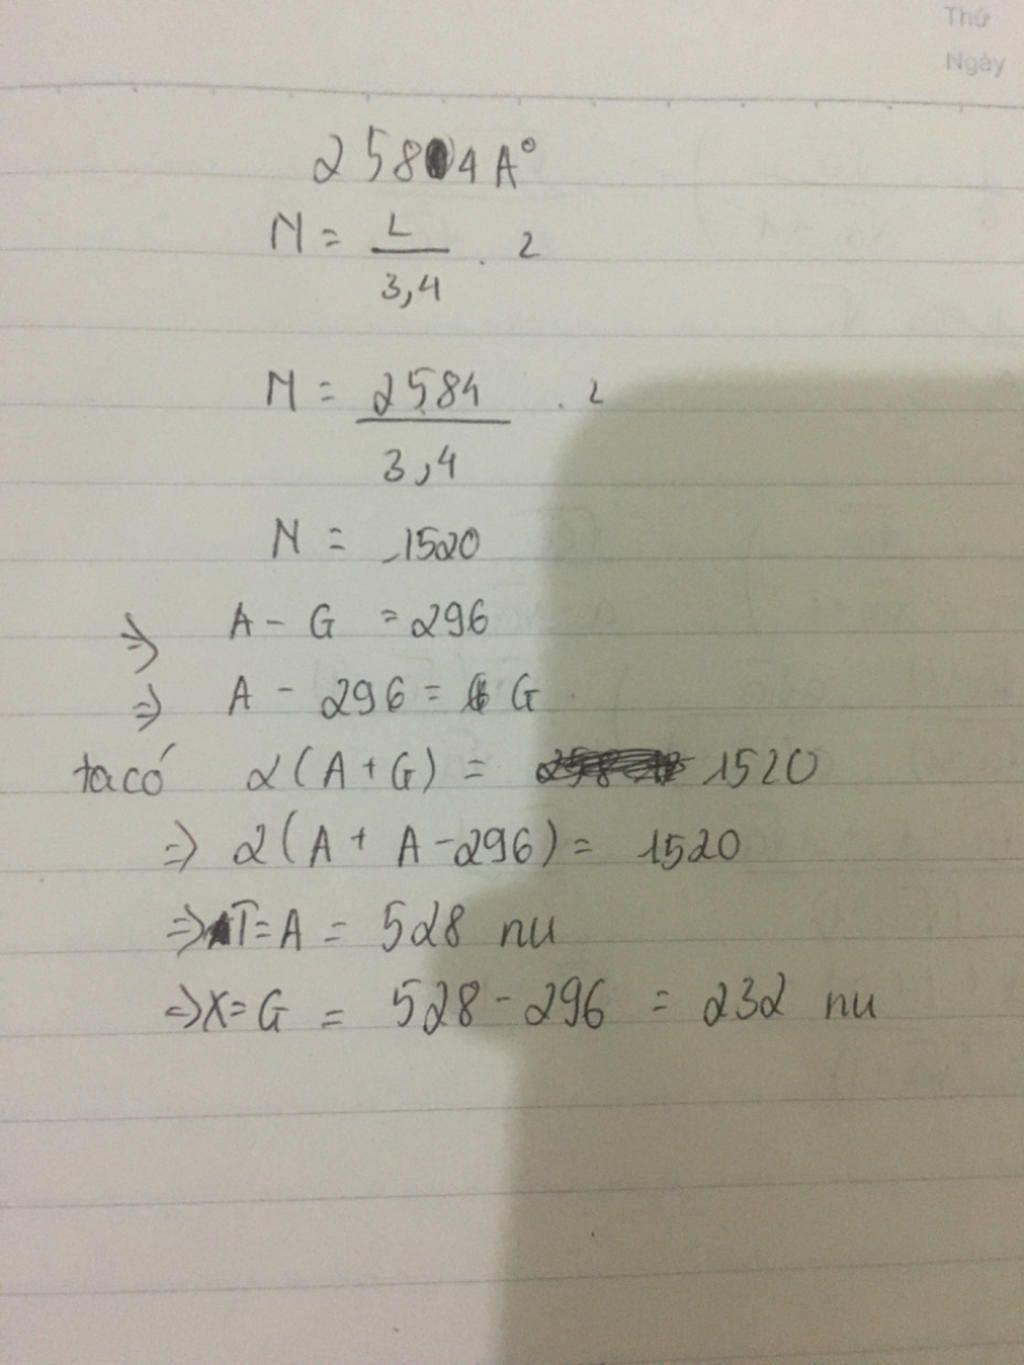 Thứ
Ngày
2584 A°
N = L / 3,4 . 2
N = 2584 / 3,4 . 2
N = 1520
=> A - G = 296
=> A - 296 = G
ta có 2(A + G) = 1520
=> 2(A + A - 296) = 1520
=> T = A = 528 nu
=> X = G = 528 - 296 = 232 nu